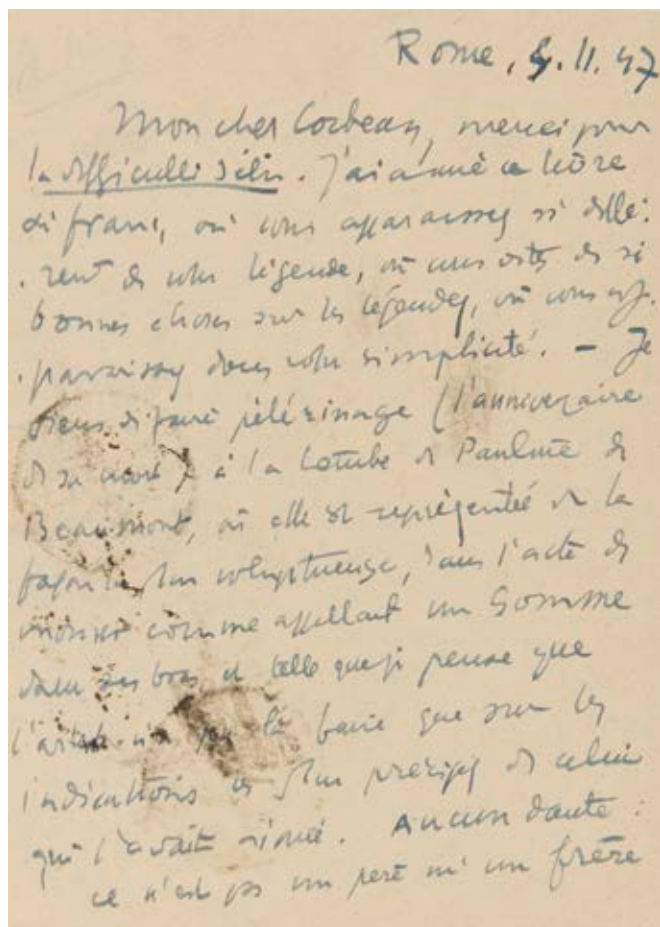 Rome, 4.11.47
Mon cher Cocteau, merci pour
la difficulté d'être. J'ai aimé ce livre
de franc, où vous apparaissez si diffé-
rent de votre légende, où vous dites de si
bonnes choses sur les légendes, où vous ap-
paraissez dans votre simplicité. — Je
viens de faire pèlerinage (l'anniversaire
de sa mort) à la tombe de Pauline de
Beaumont, où elle est représentée de la
façon la plus voluptueuse, dans l'acte de
mourir comme appellant un homme
dans ses bras, et telle que je pense que
l'artiste n'a pu la faire que sur les
indications les plus précises de celui
qui l'avait aimée. Aucun doute :
ce n'est pas un père ni un frère